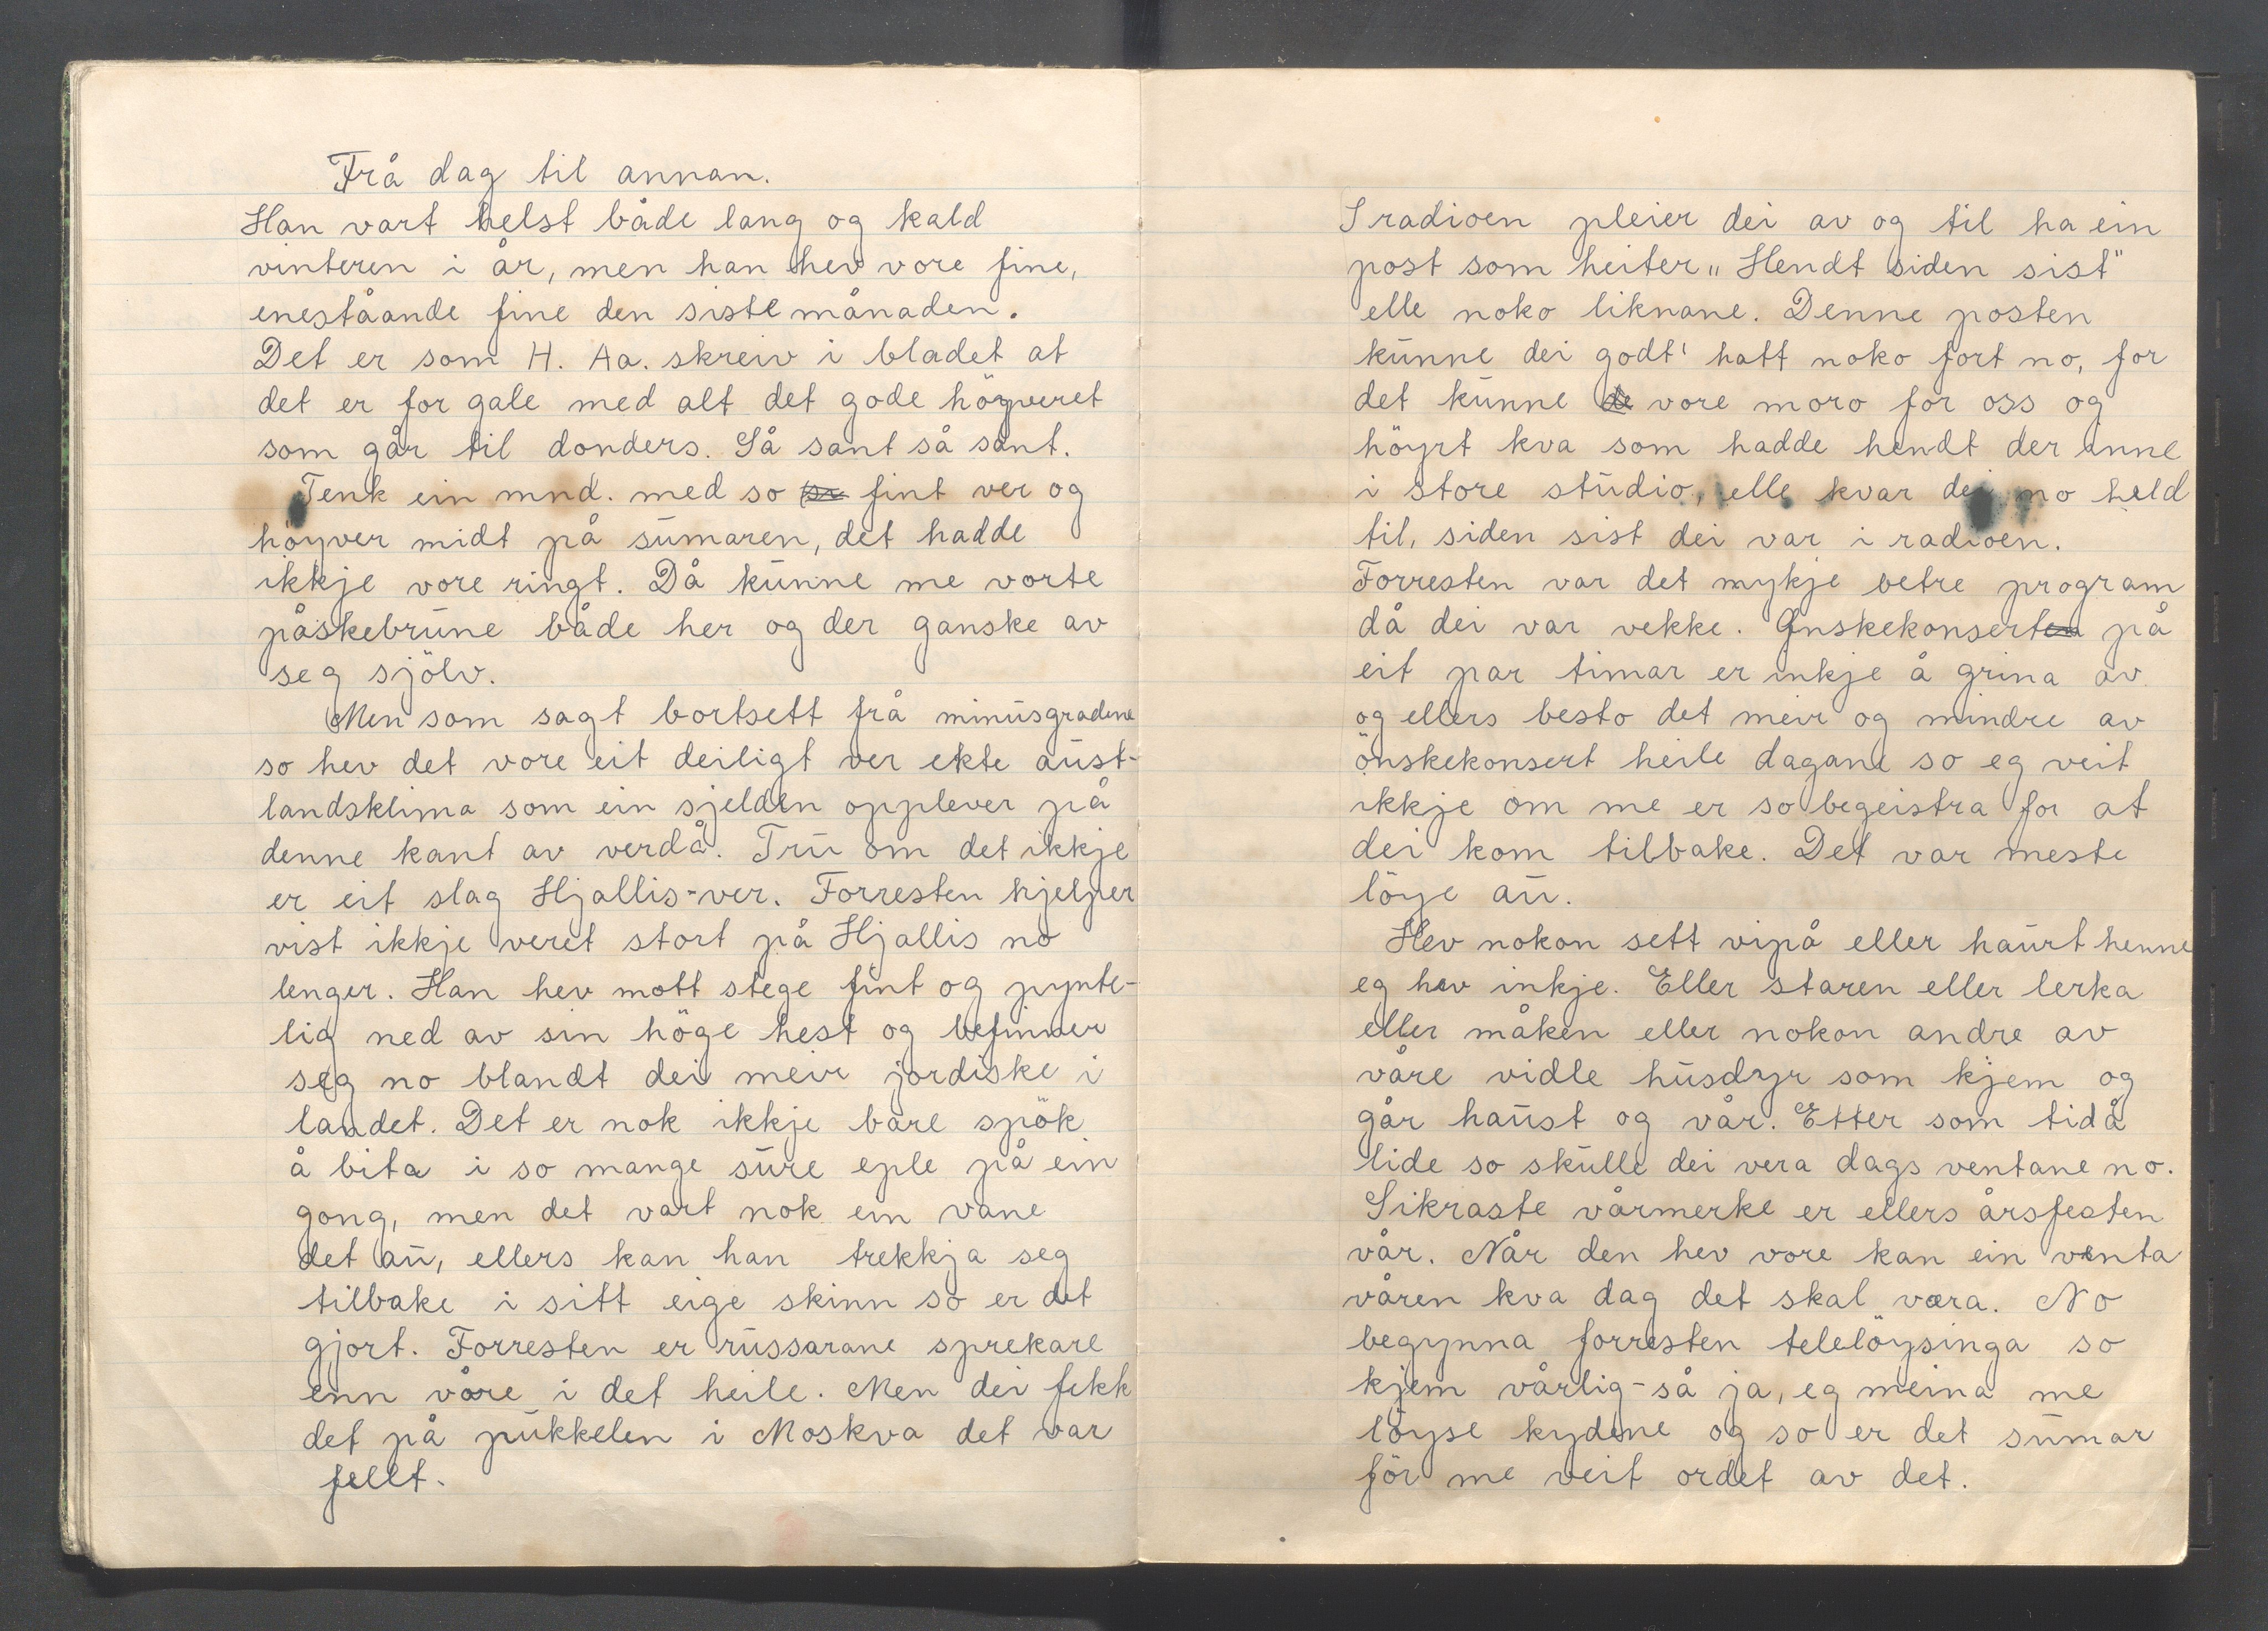 Frå dag til annan.
Han vart helst både lang og kald
vinteren i år, men han hev vore fine,
eneståande fine den siste månaden.
Det er som H. Aa. skreiv i bladet at
det er for gale med alt det gode höyveret
som går til donders. Så sant så sant.
Tenk ein mnd. med so fint ver og
höyver midt på sumaren, det hadde
ikkje vore ringt. Då kunne me vorte
påskebrune både her og der ganske av
seg sjölv.
Men som sagt bortsett frå minusgradene
so hev det vore eit deiligt ver ekte aust-
landsklima som ein sjelden opplever på
denne kant av verdå. Tru om det ikkje
er eit slag Hjallis-ver. Forresten hjelper
vist ikkje veret stort på Hjallis no
lenger. Han hev mott stege fint og pynte-
lig ned av sin höge hest og befinner
seg no blandt dei meir jordiske i
landet. Det er nok ikkje bare spök
å bita i so mange sure eple på ein
gong, men det vart nok ein vane
det au, ellers kan han trekkja seg
tilbake i sitt eige skinn so er det
gjort. Forresten er russarane sprekare
enn våre i det heile. Men dei fekk
det på pukkelen i Moskva det var
fellt.
I radioen pleier dei av og til ha ein
post som heiter „Hendt siden sist"
elle noko liknane. Denne posten
kunne dei godt' hatt noko fort no, for
det kunne vore moro for oss og
höyrt kva som hadde hendt der inne
i store studio, elle kvar dei no held
til, siden sist dei var i radioen.
Forresten var det mykje betre program
då dei var vekke. Ønskekonsert på
eit par timar er inkje å grina av
og ellers besto det meir og mindre av
önskekonsert heile dagane so eg veit
ikkje om me er so begeistra for at
dei kom tilbake. Det var meste
löye au.
Hev nokon sett vipå eller haurt henne
eg hev inkje. Eller staren eller lerka
eller måken eller nokon andre av
våre vidle husdyr som kjem og
går haust og vår. Etter som tidå
lide so skulle dei vera dags ventane no.
Sikraste vårmerke er ellers årsfesten
vår. Når den hev vore kan ein venta
våren kva dag det skal vera. No
begynna forresten telelöysinga so
kjem vårlig-så ja, eg meina me
löyse kydene og so er det sumar
för me veit ordet av det.